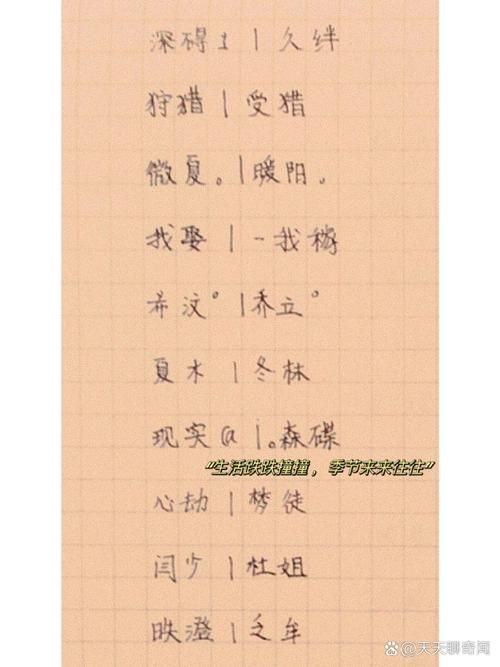 深碍± | 久绊
狩猎 | 受猎
微夏。| 暖阳。
我娶 | -我稼
希汶° | 乔立°
夏木 | 冬林
现实@ | 。森碟
“生活跌跌撞撞，季节来来往往”
心劫 | 梦徒
闫少 | 杜姐
昳澄 | 乏牟
天天聊奇闻